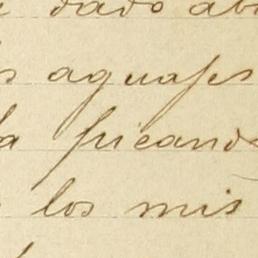 dado ab
s aguajes
la picando
los mis